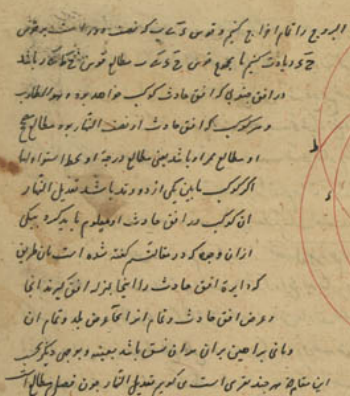 البروج را تمام افواج کنیم و قوس ء ے ب که نصف دور است بر قوس
ح ء زیادت کنیم تا مجموع قوس ح ء ے ب مطالع قوس باشد
در افق جنوبی که افق حادث کوکب خواهد بود و هو المطلوب
و هر کوکب که افق حادث او نصف النهار بود مطالع
او مطالع ممر او باشد یعنی مطالع درجهٔ او بخط استواء اما
اگر کوکب مابین یکی از دو وتد باشد تعدیل النهار
آن کوکب در افق حادث او معلوم باید کرد بیکی
از آن وجه که در مقالت گفته شده است بآن طریق
که دایرهٔ افق حادث را اینجا بمنزله افق گیرند آنجا
و عرض افق حادث و تمام آنرا بجا عرض بلد و تمام آن
و باقی براهین بر آن نسق باشد بعینه و بوجهی دیگر
این مقام مقرری است می گویم تعدیل النهار چون فضل مطالع
ط
ء